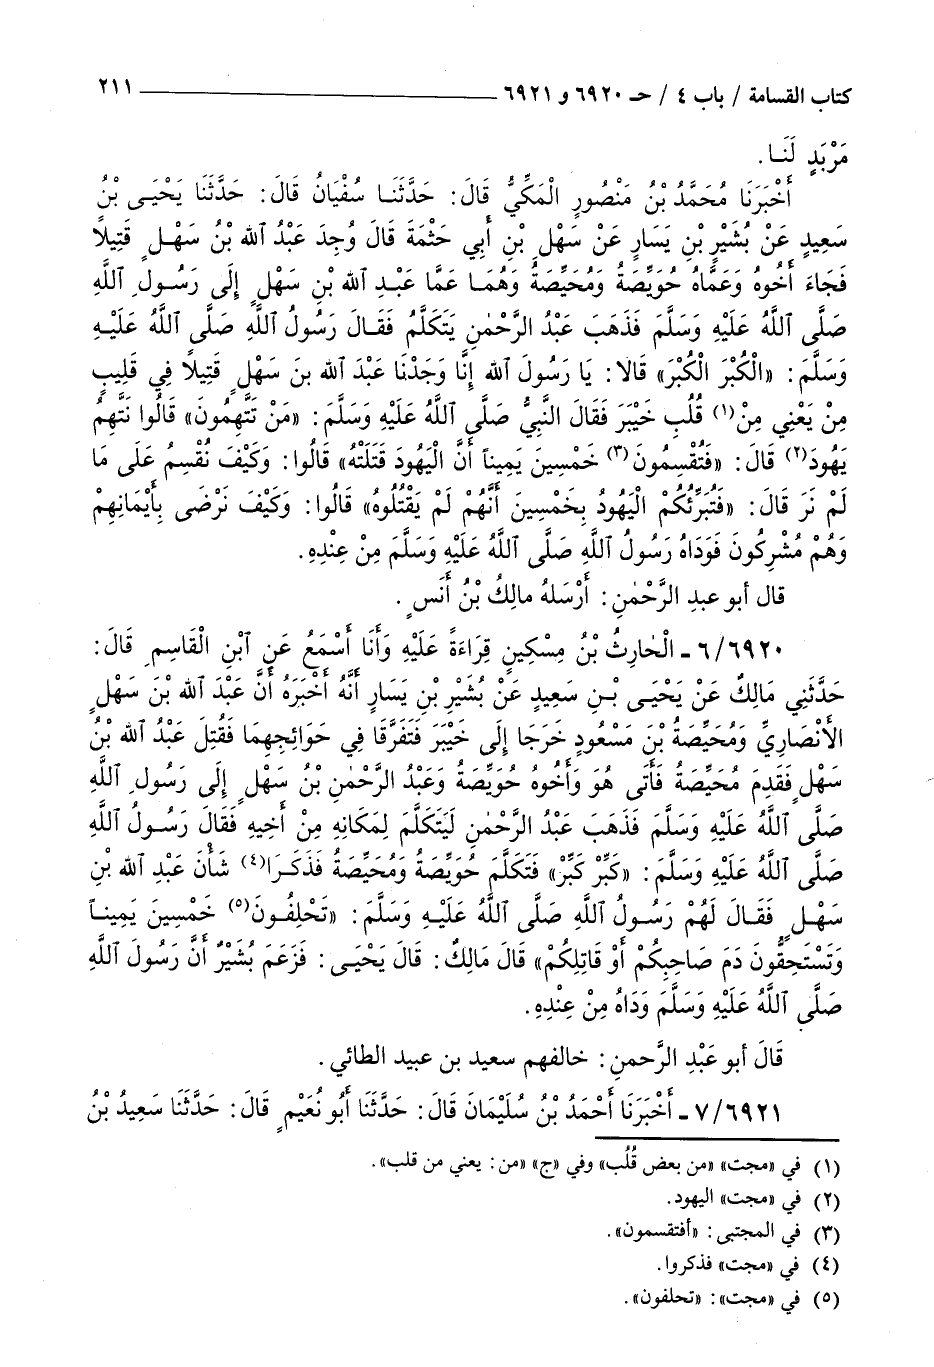 كتاب القسامة / باب ٤ / حـ ٦٩٢٠ و ٦٩٢١ ٢١١
مَرْبَدٍ لَنَـا .
أَخْبَرَنَا مُحَمَّدُ بْنُ مَنْصُورٍ الْمَكِّيُّ قَالَ: حَدَّثَنَـا سُفْيَانُ قَالَ: حَدَّثَنَا يَحْيَـى بْنُ
سَعِيدٍ عَنْ بُشَيْرِ بْنِ يَسَارٍ عَنْ سَهْلِ بْنِ أَبِي حَثْمَةَ قَالَ وُجِدَ عَبْدُ الله بْنُ سَهْـلٍ قَتِيلًا
فَجَاءَ أَخُوهُ وَعَمَّاهُ حُوَيِّصَةُ وَمُحَيِّصَةُ وَهُمَـا عَمَّا عَبْـدِ الله بْنِ سَهْلٍ إِلَى رَسُـولِ اللَّهِ
صَلَّى اللَّهُ عَلَيْهِ وَسَلَّمَ فَذَهَبَ عَبْدُ الرَّحْمٰنِ يَتَكَلَّمُ فَقَـالَ رَسُولُ اللَّهِ صَلَّى اللَّهُ عَلَيْـهِ
وَسَلَّمَ: «الْكُبْرَ الْكُبْرَ» قَالَا: يَا رَسُولَ الله إِنَّا وَجَدْنَا عَبْدَ الله بنَ سَهْلٍ قَتِيلًا فِي قَلِيبٍ
مِنْ يَعْنِي مِنْ(١) قُلُبِ خَيْبَرَ فَقَالَ النَّبِيُّ صَلَّى اللَّهُ عَلَيْهِ وَسَلَّمَ: «مَنْ تَتَّهِمُونَ» قَالُوا نَتَّهِمُ
يَهُودَ(٢) قَالَ: «فَتُقْسِمُونَ(٣) خَمْسِينَ يَمِيناً أَنَّ الْيَهُودَ قَتَلَتْهُ» قَالُوا: وَكَيْفَ نُقْسِمُ عَلَى مَا
لَمْ نَرَ قَالَ: «فَتُبَرِّئُكُمُ الْيَهُودُ بِخَمْسِينَ أَنَّهُمْ لَمْ يَقْتُلُوهُ» قَالُوا: وَكَيْفَ نَرْضَى بِأَيْمَانِهِمْ
وَهُمْ مُشْرِكُونَ فَوَدَاهُ رَسُولُ اللَّهِ صَلَّى اللَّهُ عَلَيْهِ وَسَلَّمَ مِنْ عِنْدِهِ.
قال أبو عبدِ الرَّحْمٰنِ: أَرْسَلهُ مالِكُ بْنُ أَنَسٍ.
٦/٦٩٢٠ ـ الْحَارِثُ بْنُ مِسْكِينٍ قِرَاءَةً عَلَيْهِ وَأَنَا أَسْمَعُ عَنِ ابْنِ الْقَاسِمِ قَالَ:
حَدَّثَنِي مَالِكٌ عَنْ يَحْيَـى بْـنِ سَعِيدٍ عَنْ بُشَيْرِ بْنِ يَسَارٍ أَنَّهُ أَخْبَرَهُ أَنَّ عَبْدَ الله بْنَ سَهْلٍ
الأَنْصَارِيَّ وَمُحَيِّصَةَ بْنَ مَسْعُودٍ خَرَجَا إِلَى خَيْبَرَ فَتَفَرَّقَا فِي حَوَائِجِهِمَا فَقُتِلَ عَبْدُ الله بْنُ
سَهْلٍ فَقَدِمَ مُحَيِّصَةُ فَأَتَى هُوَ وَأَخُوهُ حُوَيِّصَةُ وَعَبْدُ الرَّحْمٰنِ بْنُ سَهْلٍ إِلَى رَسُولِ اللَّهِ
صَلَّى اللَّهُ عَلَيْهِ وَسَلَّمَ فَذَهَبَ عَبْدُ الرَّحْمٰنِ لَيَتَكَلَّمَ لِمَكَانِهِ مِنْ أَخِيهِ فَقَالَ رَسُـولُ اللَّهِ
صَلَّى اللَّهُ عَلَيْهِ وَسَلَّمَ: «كَبِّرْ كَبِّرْ» فَتَكَلَّمَ حُوَيِّصَةُ وَمُحَيِّصَةُ فَذَكَـرَا(٤) شَأْنَ عَبْدِ الله بْنِ
سَهْـلٍ فَقَـالَ لَهُمْ رَسُـولُ اللَّهِ صَلَّى اللَّهُ عَلَيْـهِ وَسَلَّمَ: «تَحْلِفُـونَ(٥) خَمْسِينَ يَمِينـاً
وَتَسْتَحِقُّونَ دَمَ صَاحِبِكُمْ أَوْ قَاتِلِكُمْ» قَالَ مَالِكٌ: قَالَ يَحْيَـى: فَزَعَم بُشَيْرٌ أَنَّ رَسُولَ اللَّهِ
صَلَّى اللَّهُ عَلَيْهِ وَسَلَّمَ وَدَاهُ مِنْ عِنْدِهِ.
قَالَ أبو عَبْدِ الرَّحمنِ: خالفهم سعيد بن عبيد الطائي.
٧/٦٩٢١ ـ أَخْبَرَنَا أَحْمَدُ بْنُ سُلَيْمَانَ قَالَ: حَدَّثَنَا أَبُو نُعَيْمٍ قَالَ: حَدَّثَنَا سَعِيدُ بْنُ
(١) في «مجت» «من بعض قُلُب» وفي «ج» «من: يعني من قلب».
(٢) في «مجت» اليهود.
(٣) في المجتبى: «أفتقسمون».
(٤) في «مجت» فذكروا.
(٥) في «مجت»: «تحلفون».